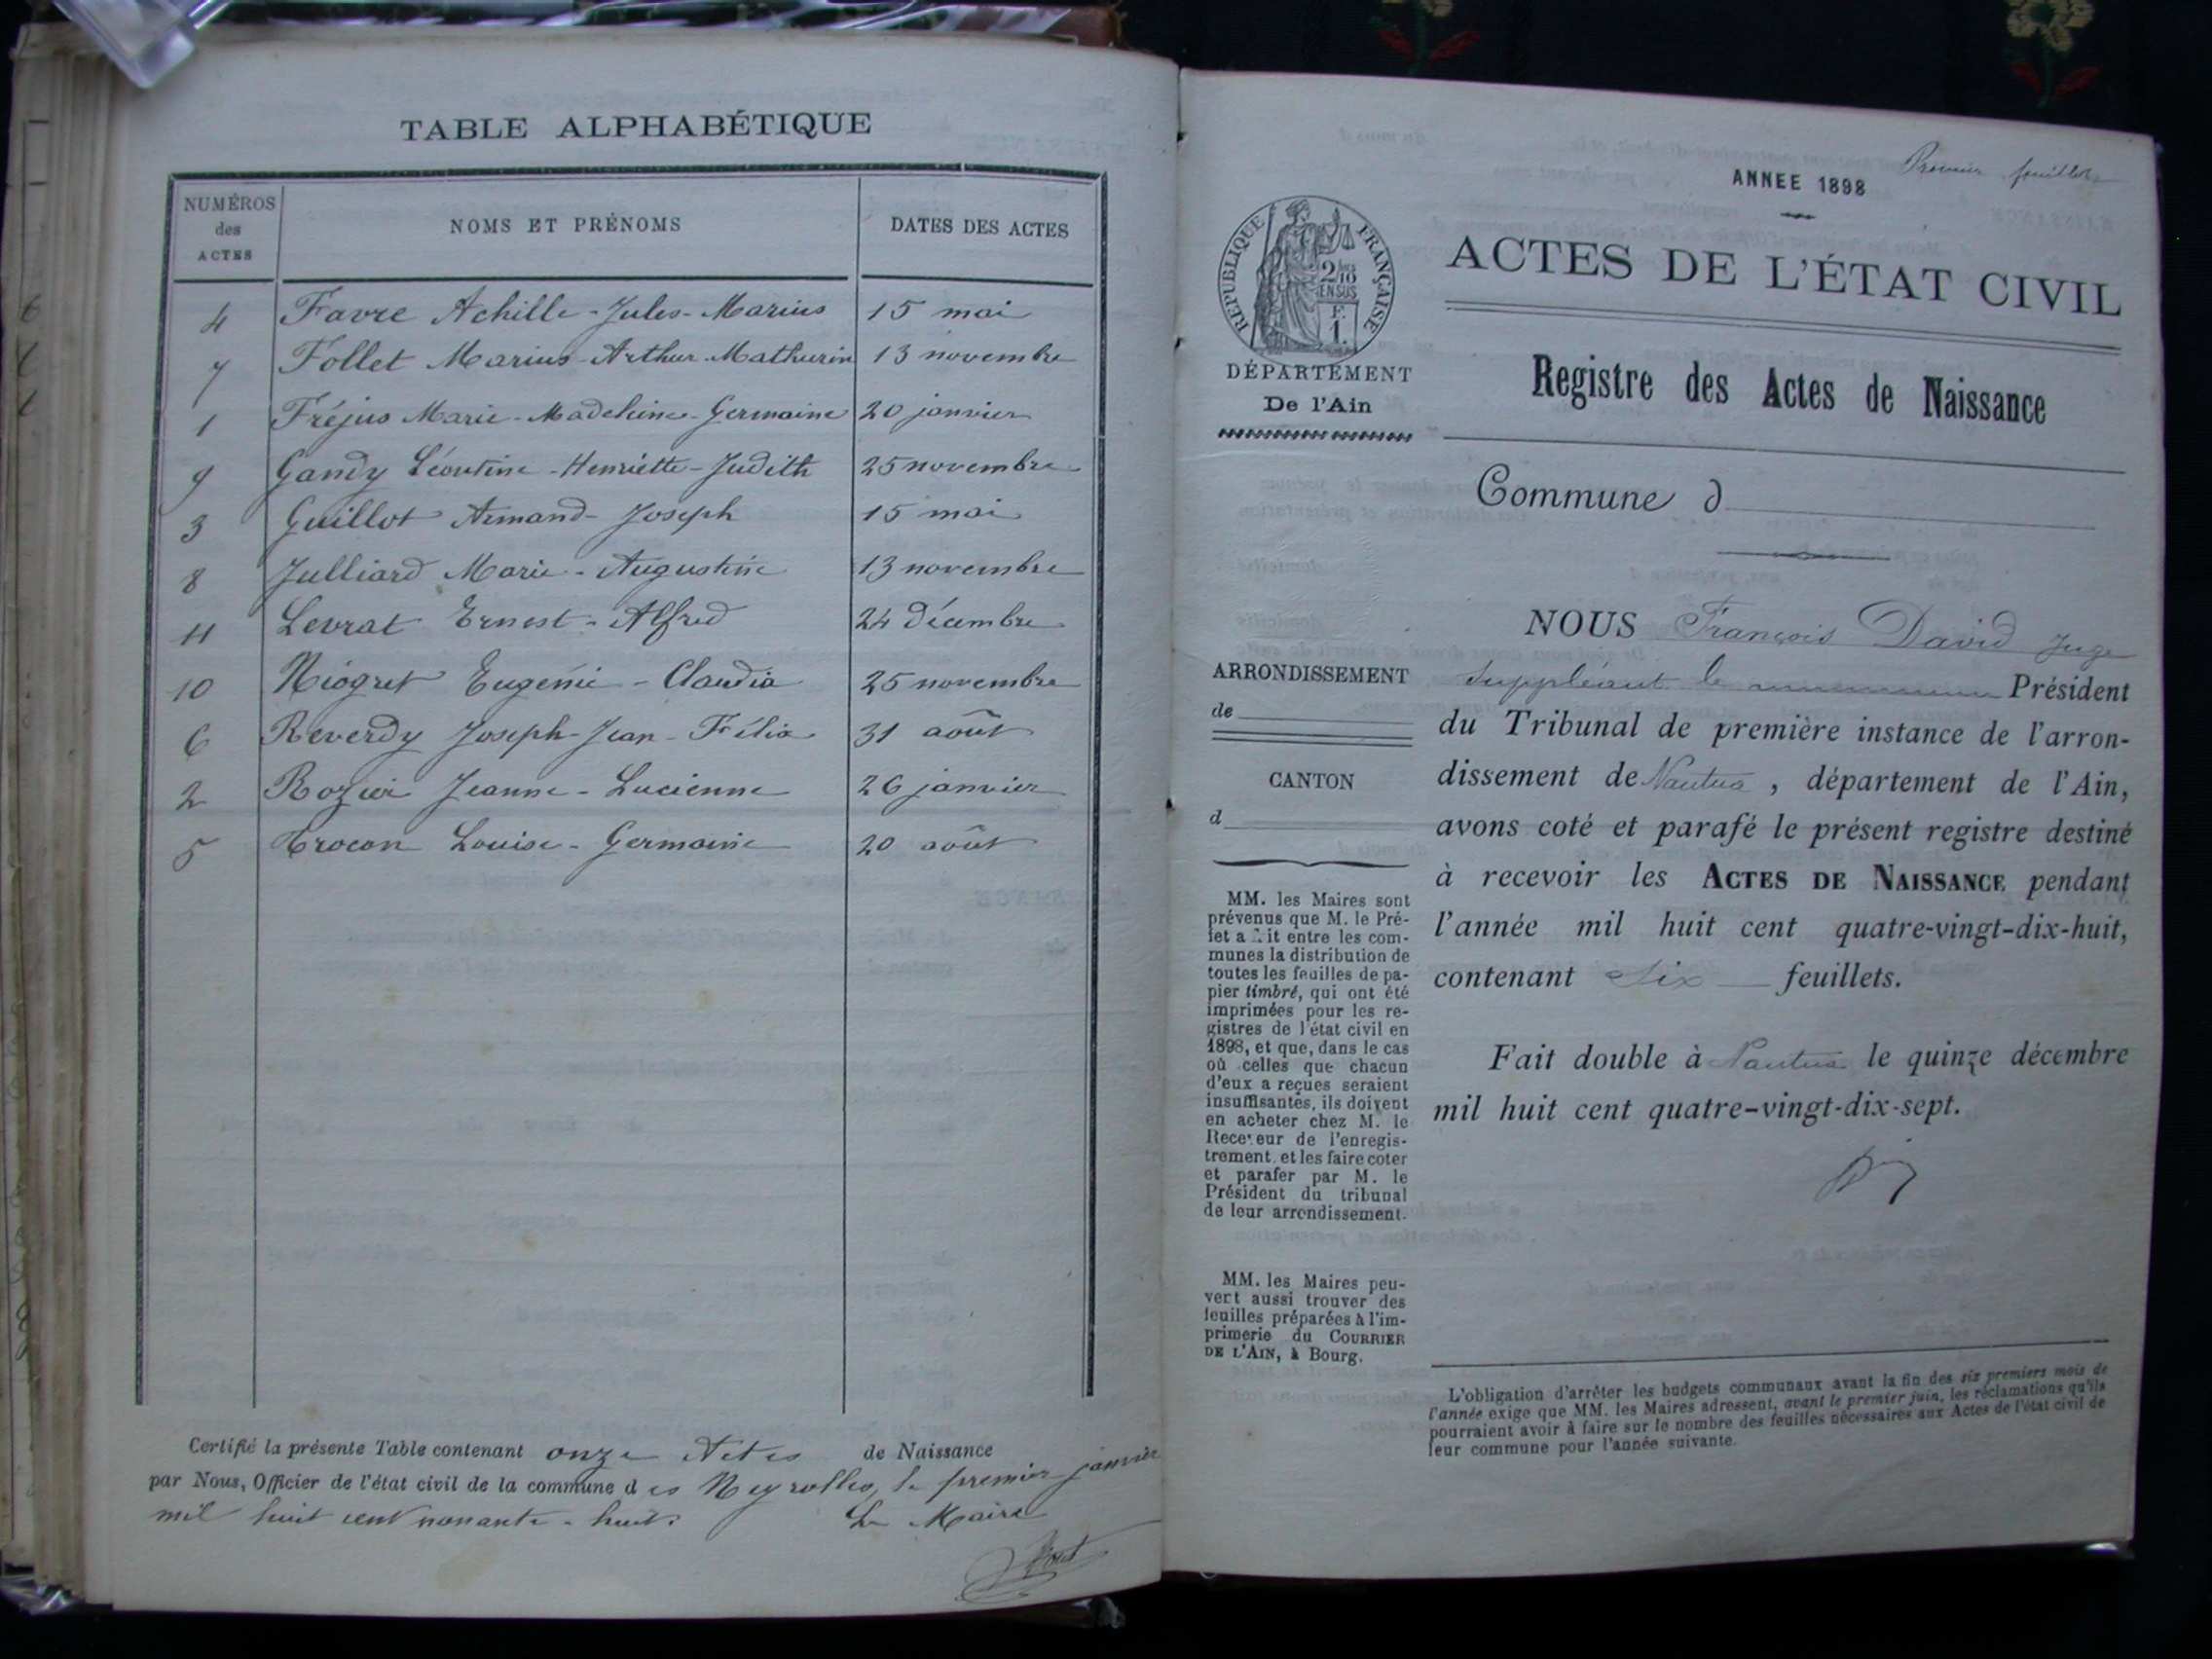 TABLE ALPHABÉTIQUE
NUMÉROS des ACTES
NOMS ET PRÉNOMS
DATES DES ACTES
4 Favre Achille-Jules-Marius 15 mai
7 Follet Marius-Arthur-Mathurin 13 novembre
1 Fréjus Marie-Madeleine-Germaine 20 janvier
9 Gandy Léontine-Henriette-Judith 25 novembre
3 Guillot Armand-Joseph 15 mai
8 Julliard Marie-Augustine 13 novembre
11 Levrat Ernest-Alfred 24 décembre
10 Niogret Eugénie-Claudia 25 novembre
6 Reverdy Joseph-Jean-Félix 31 août
2 Rozier Jeanne-Lucienne 26 janvier
5 Trocon Louise-Germaine 20 août
Certifié la présente Table contenant onze Actes de Naissance
par Nous, Officier de l'état civil de la commune des Neyrolles, le premier janvier
mil huit cent nonante-huit.
Le Maire
Premier feuillet
ANNEE 1898
ACTES DE L'ÉTAT CIVIL
REPUBLIQUE FRANÇAISE
2/10 EN SUS
F. 1.
DÉPARTEMENT
De l'Ain
Registre des Actes de Naissance
Commune d
ARRONDISSEMENT
de
CANTON
d
MM. les Maires sont
prévenus que M. le Pré-
fet a fait entre les com-
munes la distribution de
toutes les feuilles de pa-
pier timbré, qui ont été
imprimées pour les re-
gistres de l'état civil en
1898, et que, dans le cas
où celles que chacun
d'eux a reçues seraient
insuffisantes, ils doivent
en acheter chez M. le
Receveur de l'enregis-
trement, et les faire coter
et parafer par M. le
Président du tribunal
de leur arrondissement.
MM. les Maires peu-
vent aussi trouver des
feuilles préparées à l'im-
primerie du COURRIER
DE L'AIN, à Bourg.
NOUS François David Juge
Suppléant le Président
du Tribunal de première instance de l'arron-
dissement de Nantua, département de l'Ain,
avons coté et parafé le présent registre destiné
à recevoir les ACTES DE NAISSANCE pendant
l'année mil huit cent quatre-vingt-dix-huit,
contenant Six feuillets.
Fait double à Nantua le quinze décembre
mil huit cent quatre-vingt-dix-sept.
L'obligation d'arrêter les budgets communaux avant la fin des six premiers mois de
l'année exige que MM. les Maires adressent, avant le premier juin, les réclamations qu'ils
pourraient avoir à faire sur le nombre des feuilles nécessaires aux Actes de l'état civil de
leur commune pour l'année suivante.